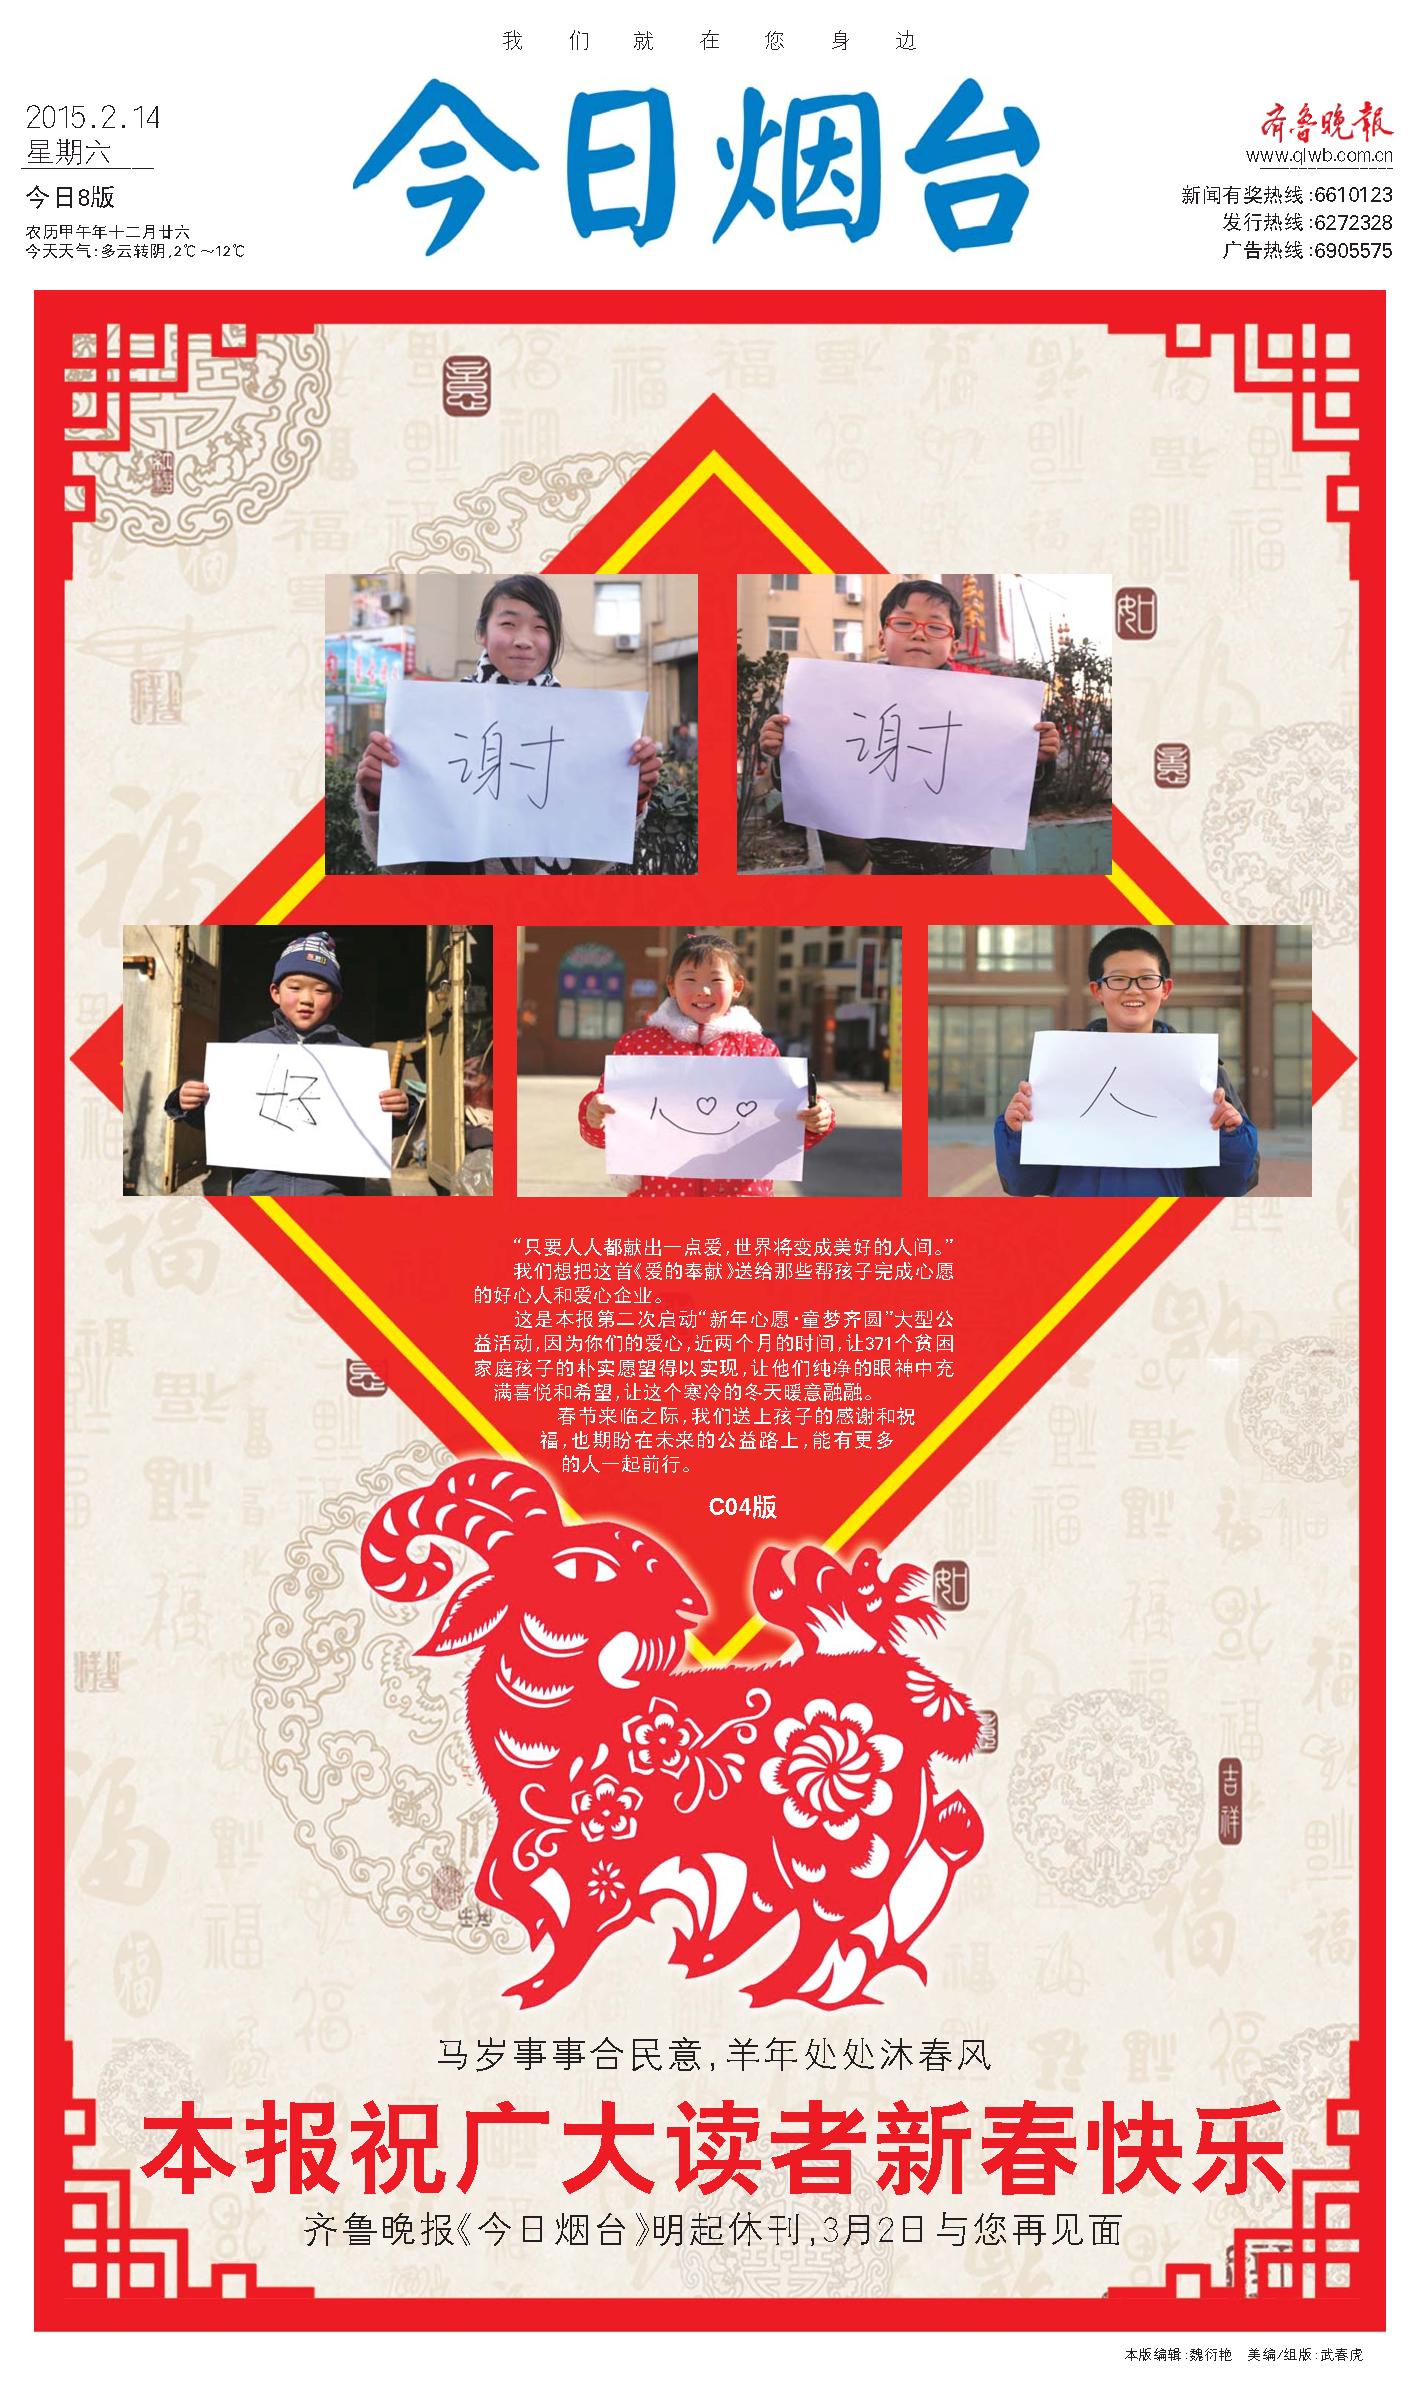 我们就在您身边
2015.2.14
星期六
今日8版
农历甲午年十二月廿六
今天天气:多云转阴,2℃～12℃
今日烟台
齐鲁晚报
www.qlwb.com.cn
新闻有奖热线:6610123
发行热线:6272328
广告热线:6905575
谢
谢
好
心
人
“只要人人都献出一点爱,世界将变成美好的人间。”
我们想把这首《爱的奉献》送给那些帮孩子完成心愿
的好心人和爱心企业。
这是本报第二次启动“新年心愿·童梦齐圆”大型公
益活动,因为你们的爱心,近两个月的时间,让371个贫困
家庭孩子的朴实愿望得以实现,让他们纯净的眼神中充
满喜悦和希望,让这个寒冷的冬天暖意融融。
春节来临之际,我们送上孩子的感谢和祝
福,也期盼在未来的公益路上,能有更多
的人一起前行。
C04版
如
如
吉祥
马岁事事合民意,羊年处处沐春风
本报祝广大读者新春快乐
齐鲁晚报《今日烟台》明起休刊,3月2日与您再见面
本版编辑:魏衍艳 美编/组版:武春虎